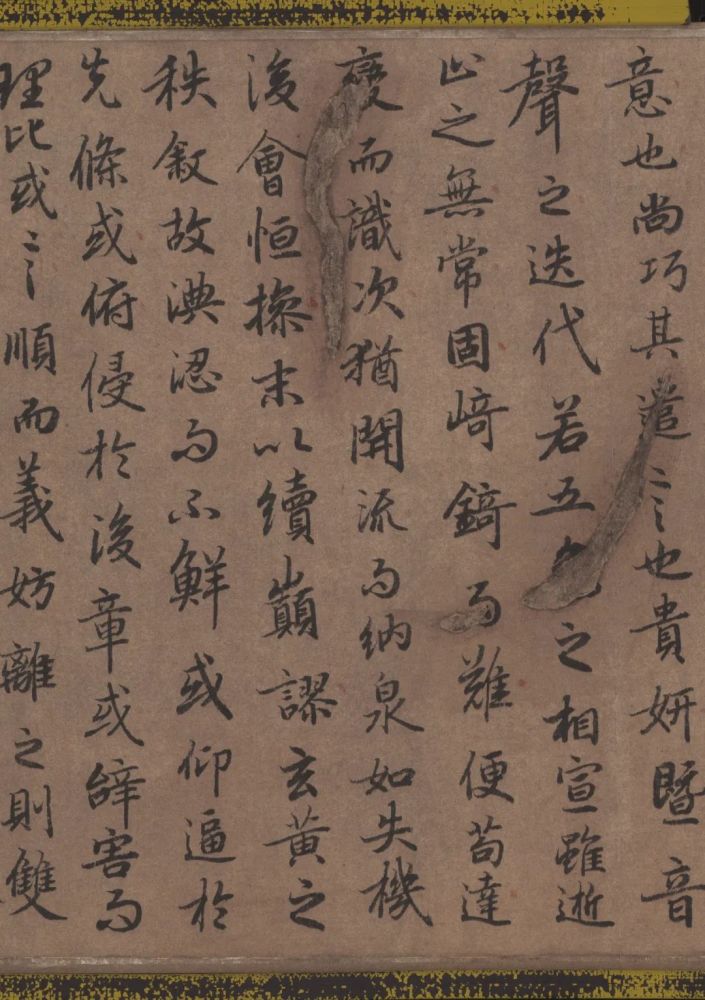 意也尚巧其遣言也貴妍暨音
聲之迭代若五色之相宣雖逝
止之無常固崎錡而難便苟達
變而識次猶開流而納泉如失機
後會恒操末以續巔謬玄黃之
秩叙故淟涊而不鮮或仰逼於
先條或俯侵於後章或辭害而
理比或言順而義妨離之則雙